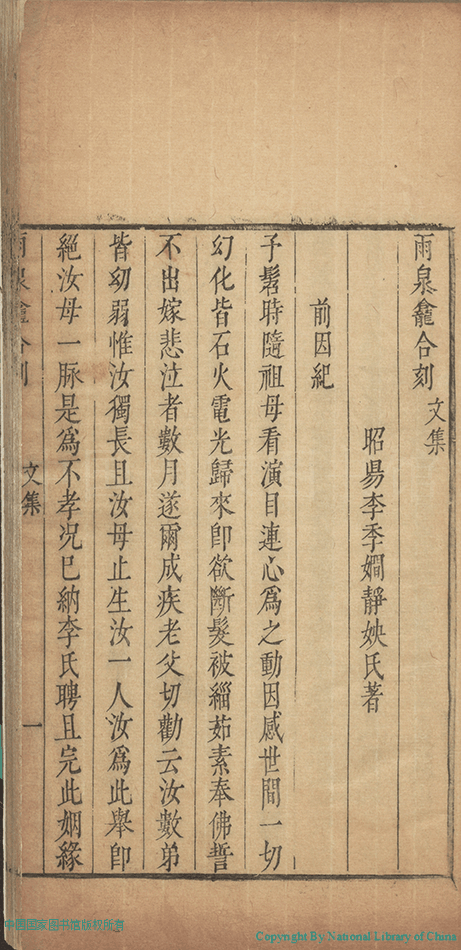 雨泉龕合刻 文集
昭昜李季嫺靜姎氏著
前因紀
予髫時隨祖母看演目連心爲之動因感世間一切
幻化皆石火電光歸來即欲斷髮被緇茹素奉佛誓
不出嫁悲泣者數月遂爾成疾老父切勸云汝數弟
皆幼弱惟汝獨長且汝母止生汝一人汝爲此舉即
絕汝母一脉是爲不孝况已納李氏聘且完此姻緣
雨泉龕合刻 文集 一
中国国家图书馆版权所有
Copyright By National Library of China